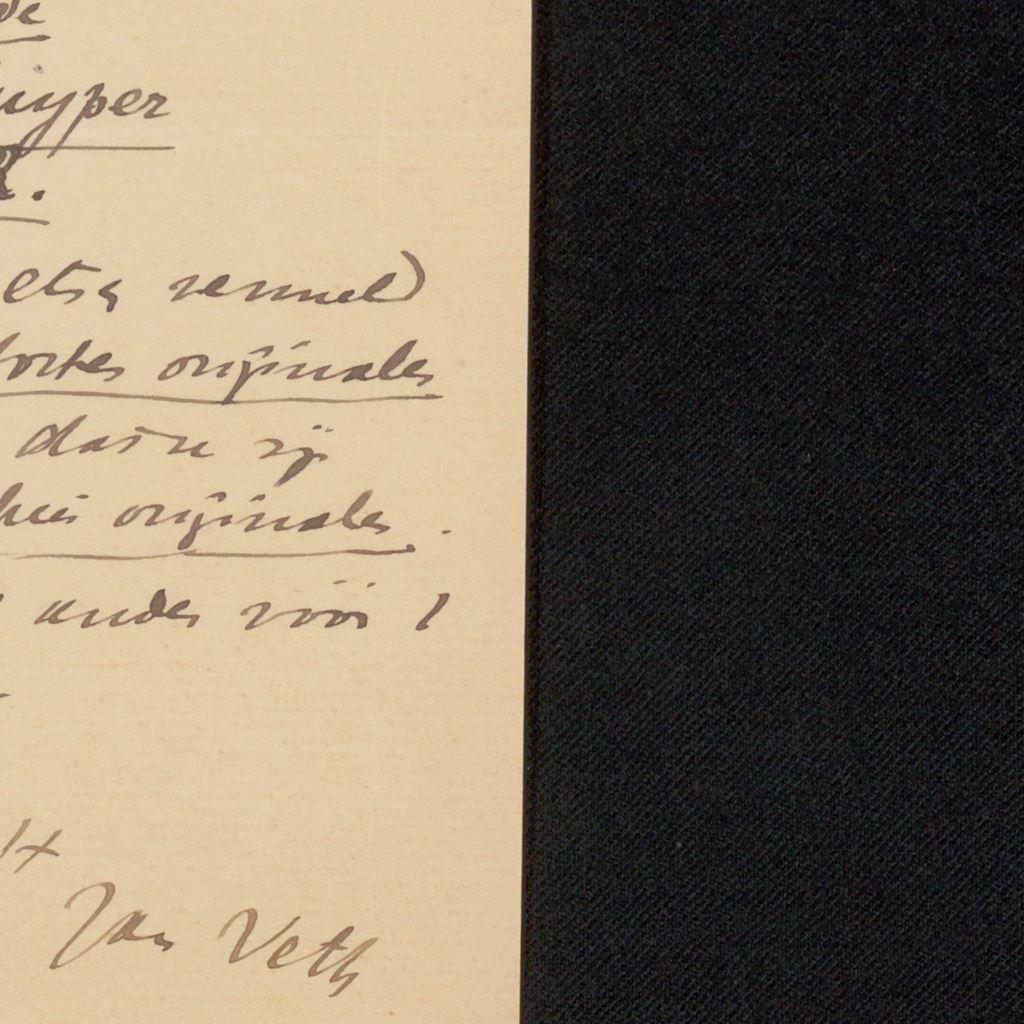 de
uyper
R.
ets vermeld
fortes originales
dat zij
hies originales.
ander vóór 1
Jan Veth